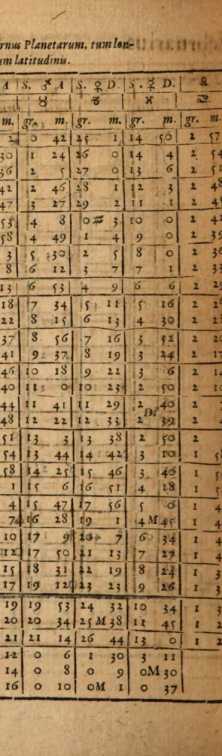 rnus Planetarum, tum lon-
um latitudinis.
A | S. ♂ A | S. ♀ D. | S. ☿ D. | ☊
♉ | ♑ | ♓
m. | gr. m. | gr. m. | gr. m. | gr. m.
0 42 | 25 1 | 14 50 | 2
30 | 1 24 | 26 0 | 14 4 | 2
36 | 2 5 | 27 0 | 13 6 | 2
42 | 2 46 | 28 1 | 12 3 | 2
47 | 3 27 | 29 2 | 11 1 | 2
53 | 4 8 | 0 ♒ 3 | 10 0 | 2
58 | 4 49 | 1 4 | 9 0 | 2
3 | 5 30 | 2 5 | 8 0 | 2
8 | 6 12 | 3 7 | 7 1 | 2
13 | 6 53 | 4 9 | 6 6 | 2
18 | 7 34 | 5 11 | 5 16 | 2
22 | 8 15 | 6 13 | 4 30 | 2
37 | 8 56 | 7 16 | 3 52 | 2
41 | 9 37 | 8 19 | 3 24 | 2
46 | 10 18 | 9 22 | 3 6 | 2
40 | 11 0 | 10 25 | 2 50 | 2
44 | 11 41 | 11 29 | 2 40 | 2
48 | 12 22 | 12 33 | 2 39 | 2
51 | 13 3 | 13 38 | 2 50 | 2
54 | 13 44 | 14 42 | 3 10 | 1
58 | 14 25 | 15 46 | 3 40 | 1
1 | 15 6 | 16 51 | 4 18 | 1
4 | 15 47 | 17 56 | 5 0 | 1
7 | 16 28 | 19 1 | 4 M 45 | 1
10 | 17 9 | 20 7 | 6 34 | 1
12 | 17 50 | 21 13 | 7 27 | 1
15 | 18 31 | 22 19 | 8 23 | 1
17 | 19 12 | 23 23 | 9 26 | 1
19 | 19 53 | 24 32 | 10 34 | 1
20 | 20 34 | 25 M 38 | 11 45 | 1
21 | 21 14 | 26 44 | 13 0 | 1
12 | 0 6 | 1 30 | 3 11
14 | 0 8 | 0 9 | 0M 30
16 | 0 10 | 0M 1 | 0 37